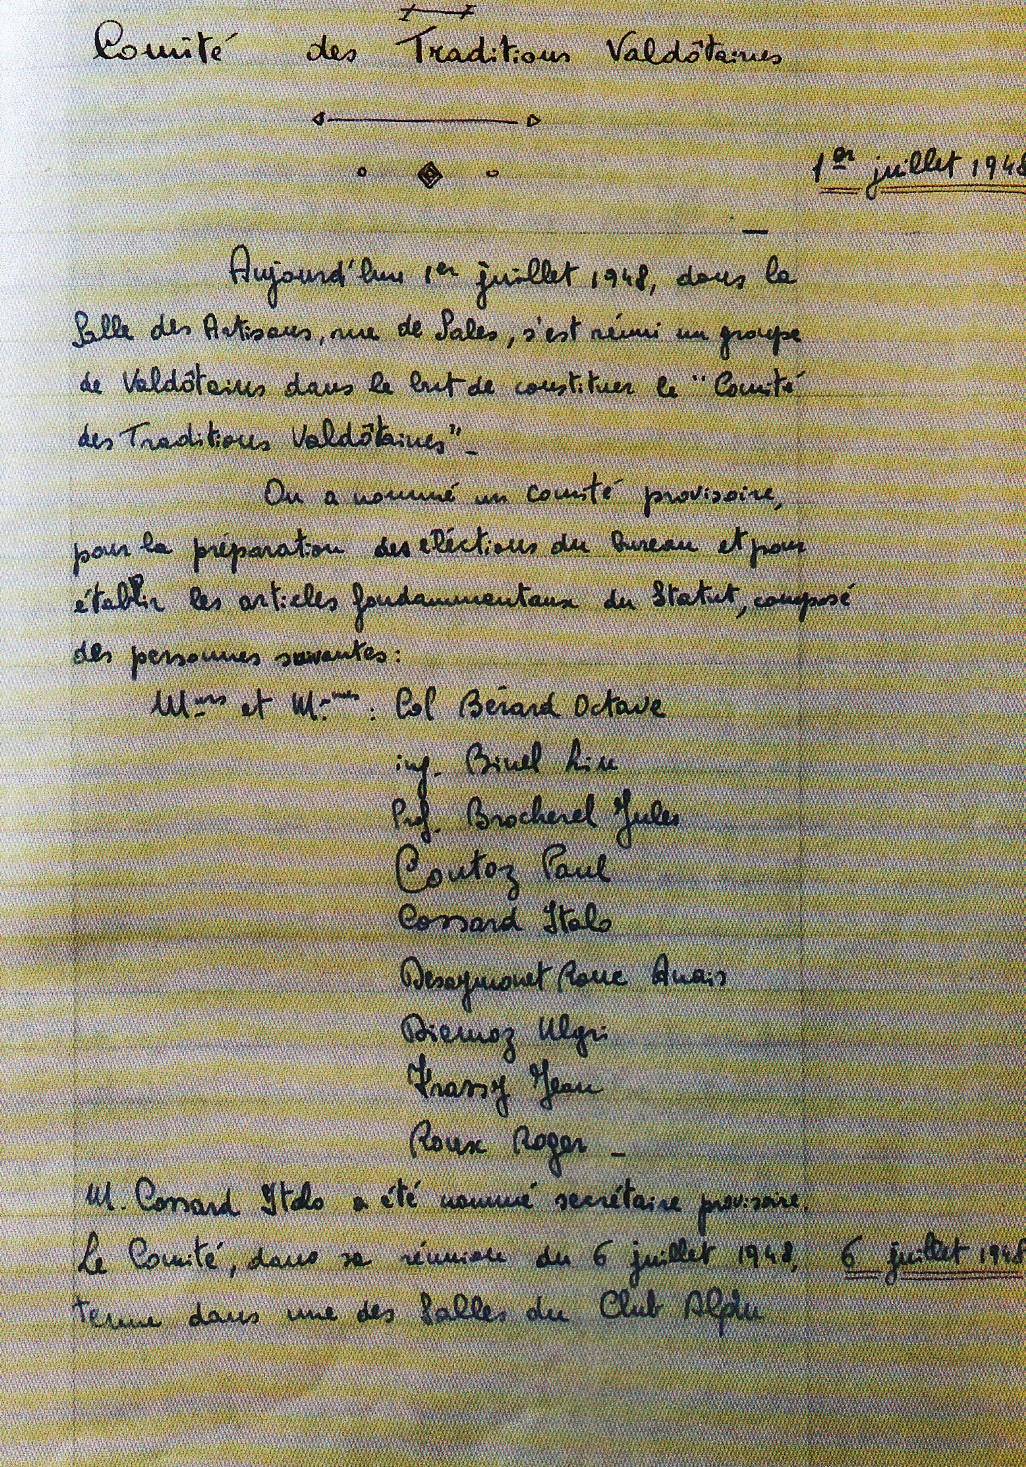 Comité des Traditions Valdôtaines
1er juillet 1948
Aujourd'hui 1er juillet 1948, dans la
Salle des Artisans, rue de Sales, s'est réuni un groupe
de Valdôtains dans le but de constituer le "Comité
des Traditions Valdôtaines".
On a nommé un comité provisoire,
pour la préparation des eléctions du bureau et pour
établir les articles fondammentaux du Statut, composé
des personnes suivantes:
Mrs et Mmes: Col Bérard Octave
ing. Binel Lin
Prof. Brocherel Jules
Coutoz Paul
Cossard Italo
Desaymonet Roux Anais
Diemoz Ulgri
Frassy Jean
Roux Roger -
M. Cossard Italo a été nommé secrétaire provisoire.
Le Comité, dans sa réunion du 6 juillet 1948, 6 juillet 1948
tenue dans une des Salles du Club Alpin